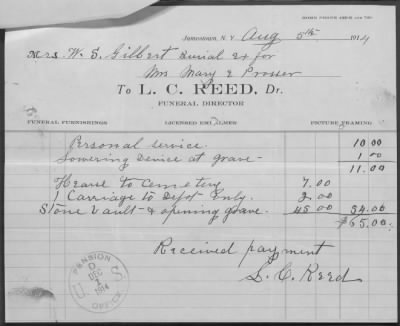 HOME PHONE
Jamestown, N. Y. Aug 5th 1914
Mrs. W. S. Gilbert Burial Ex for
Mrs Mary E Prosser
To L. C. REED, Dr.
FUNERAL DIRECTOR
FUNERAL FURNISHINGS LICENSED EMBALMER PICTURE FRAMING
Personal service. 10 00
Lowering Device at grave - 1 00
11.00
Hearse to Cemetery 7.00
1 Carriage to Depot only. 2.00
Stone Vault - & opening grave. 45 00 54.00
$65.00
Received payment
L. C. Reed
PENSION
D
DEC
1
1914
U S
OFFICE